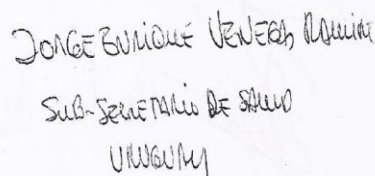 JORGE ENRIQUE VENEGAS RAMIREZ
SUB-SECRETARIO DE SALUD
URUGUAY